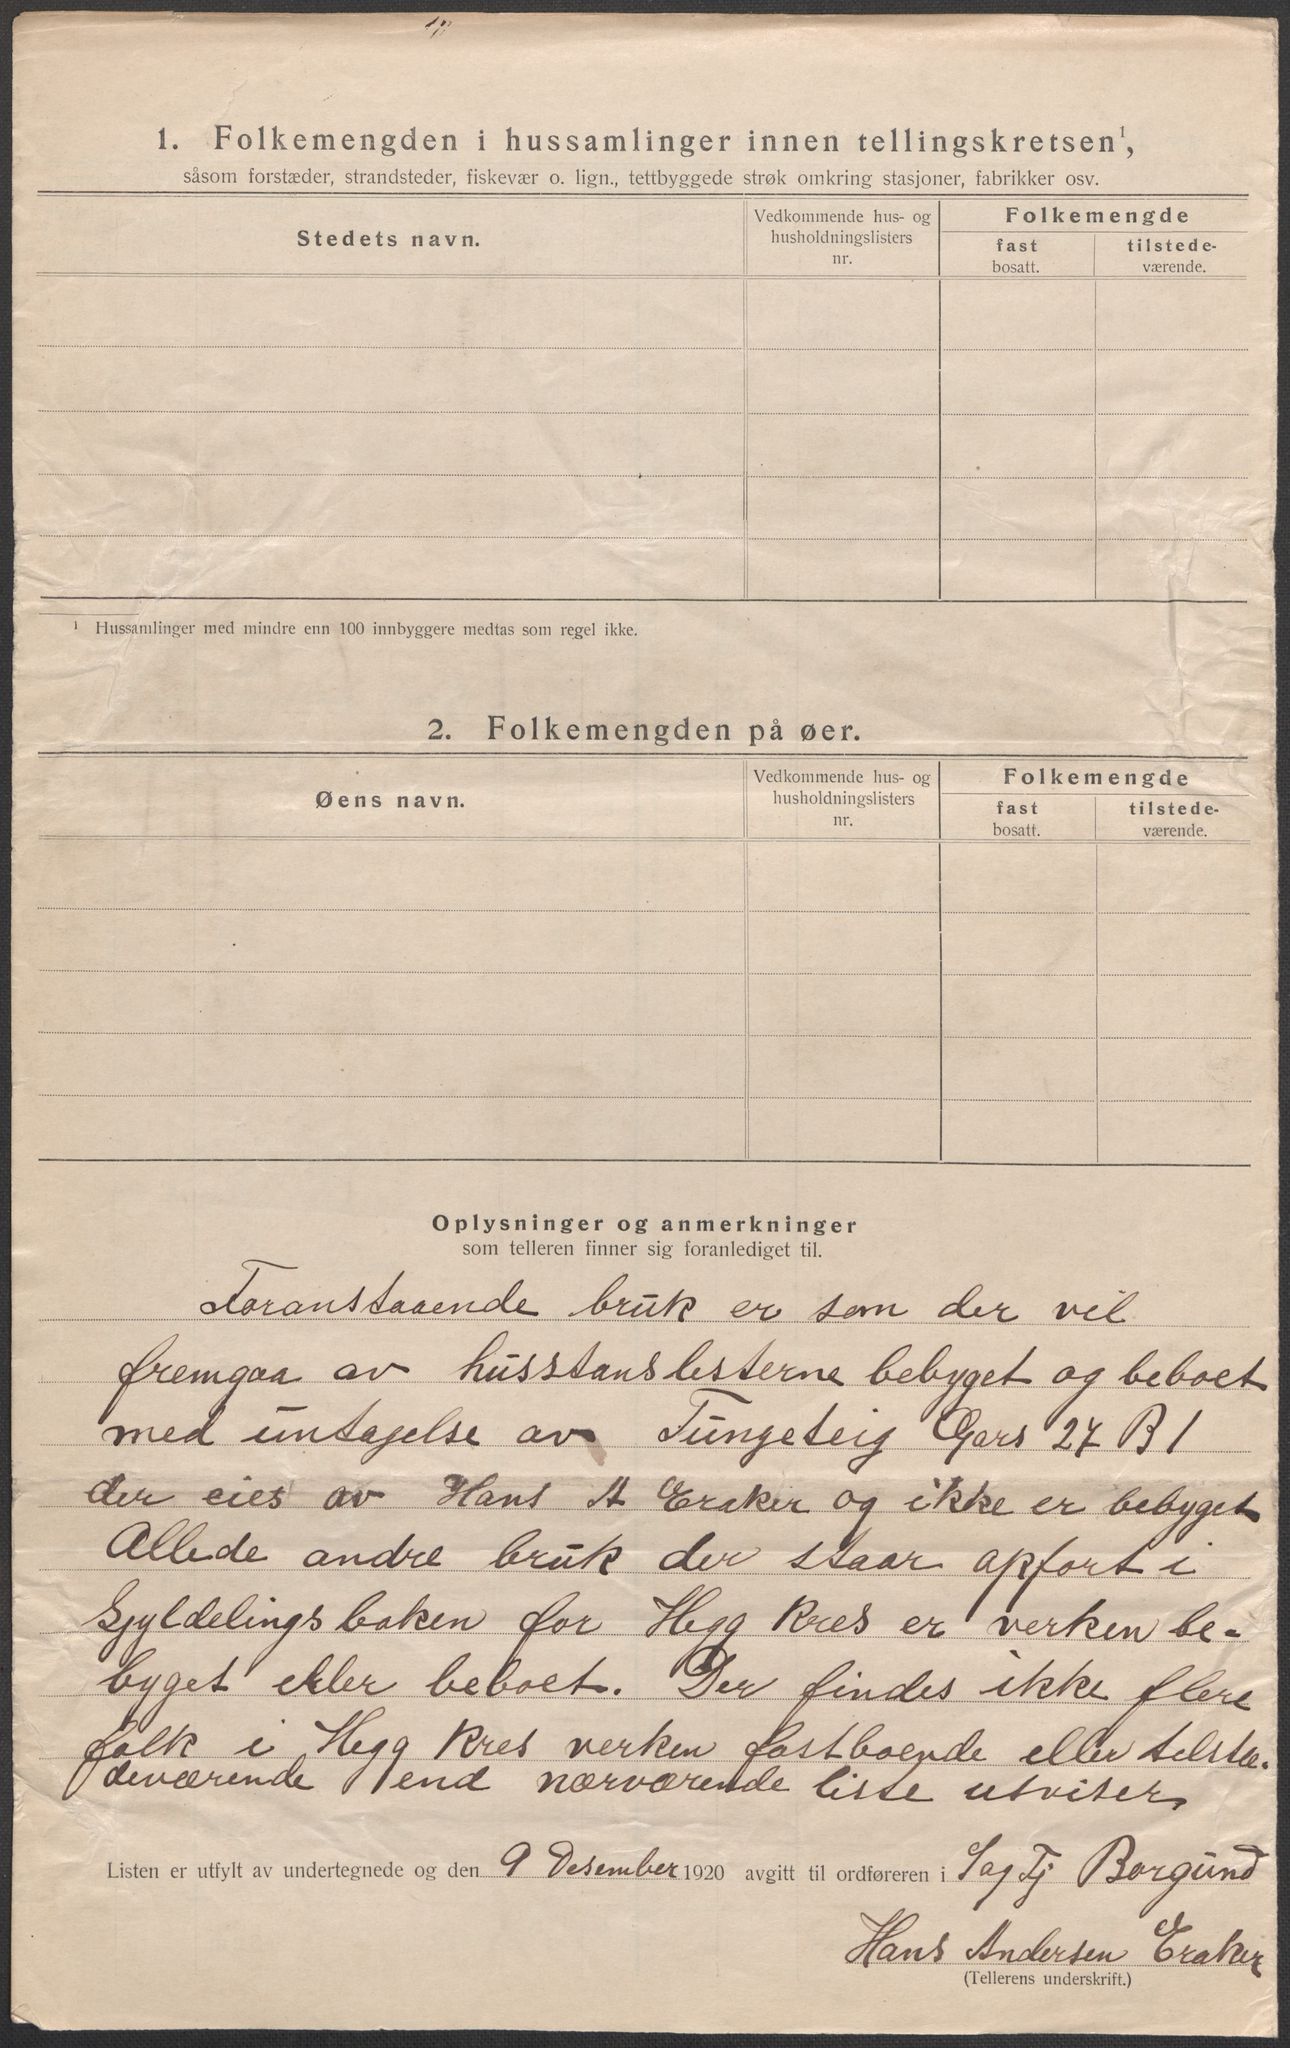 1. Folkemengden i hussamlinger innen tellingskretsen¹,
såsom forstæder, strandsteder, fiskevær o. lign., tettbyggede strøk omkring stasjoner, fabrikker osv.
Stedets navn.
Vedkommende hus- og
husholdningslisters
nr.
Folkemengde
fast
bosatt.
tilstede-
værende.
¹ Hussamlinger med mindre enn 100 innbyggere medtas som regel ikke.
2. Folkemengden på øer.
Øens navn.
Vedkommende hus- og
husholdningslisters
nr.
Folkemengde
fast
bosatt.
tilstede-
værende.
Oplysninger og anmerkninger
som telleren finner sig foranlediget til.
Foranstaaende bruk er som der vil
fremgaa av husstanslisterne bebyget og beboet
med untagelse av Tungeteig Gars 27 B 1
der eies av Hans A Eraker og ikke er bebyget
Allede andre bruk der staar opført i
Gjyldelingsboken for Hegg Kres er verken be-
byget eller beboet. Der findes ikke flere
folk i Hegg Kres verken fastboende eller tilstæ-
deværende end nærværende liste utviser
Listen er utfylt av undertegnede og den 9 Desember 1920 avgitt til ordføreren i Borgund
Hans Andersen Eraker
(Tellerens underskrift.)